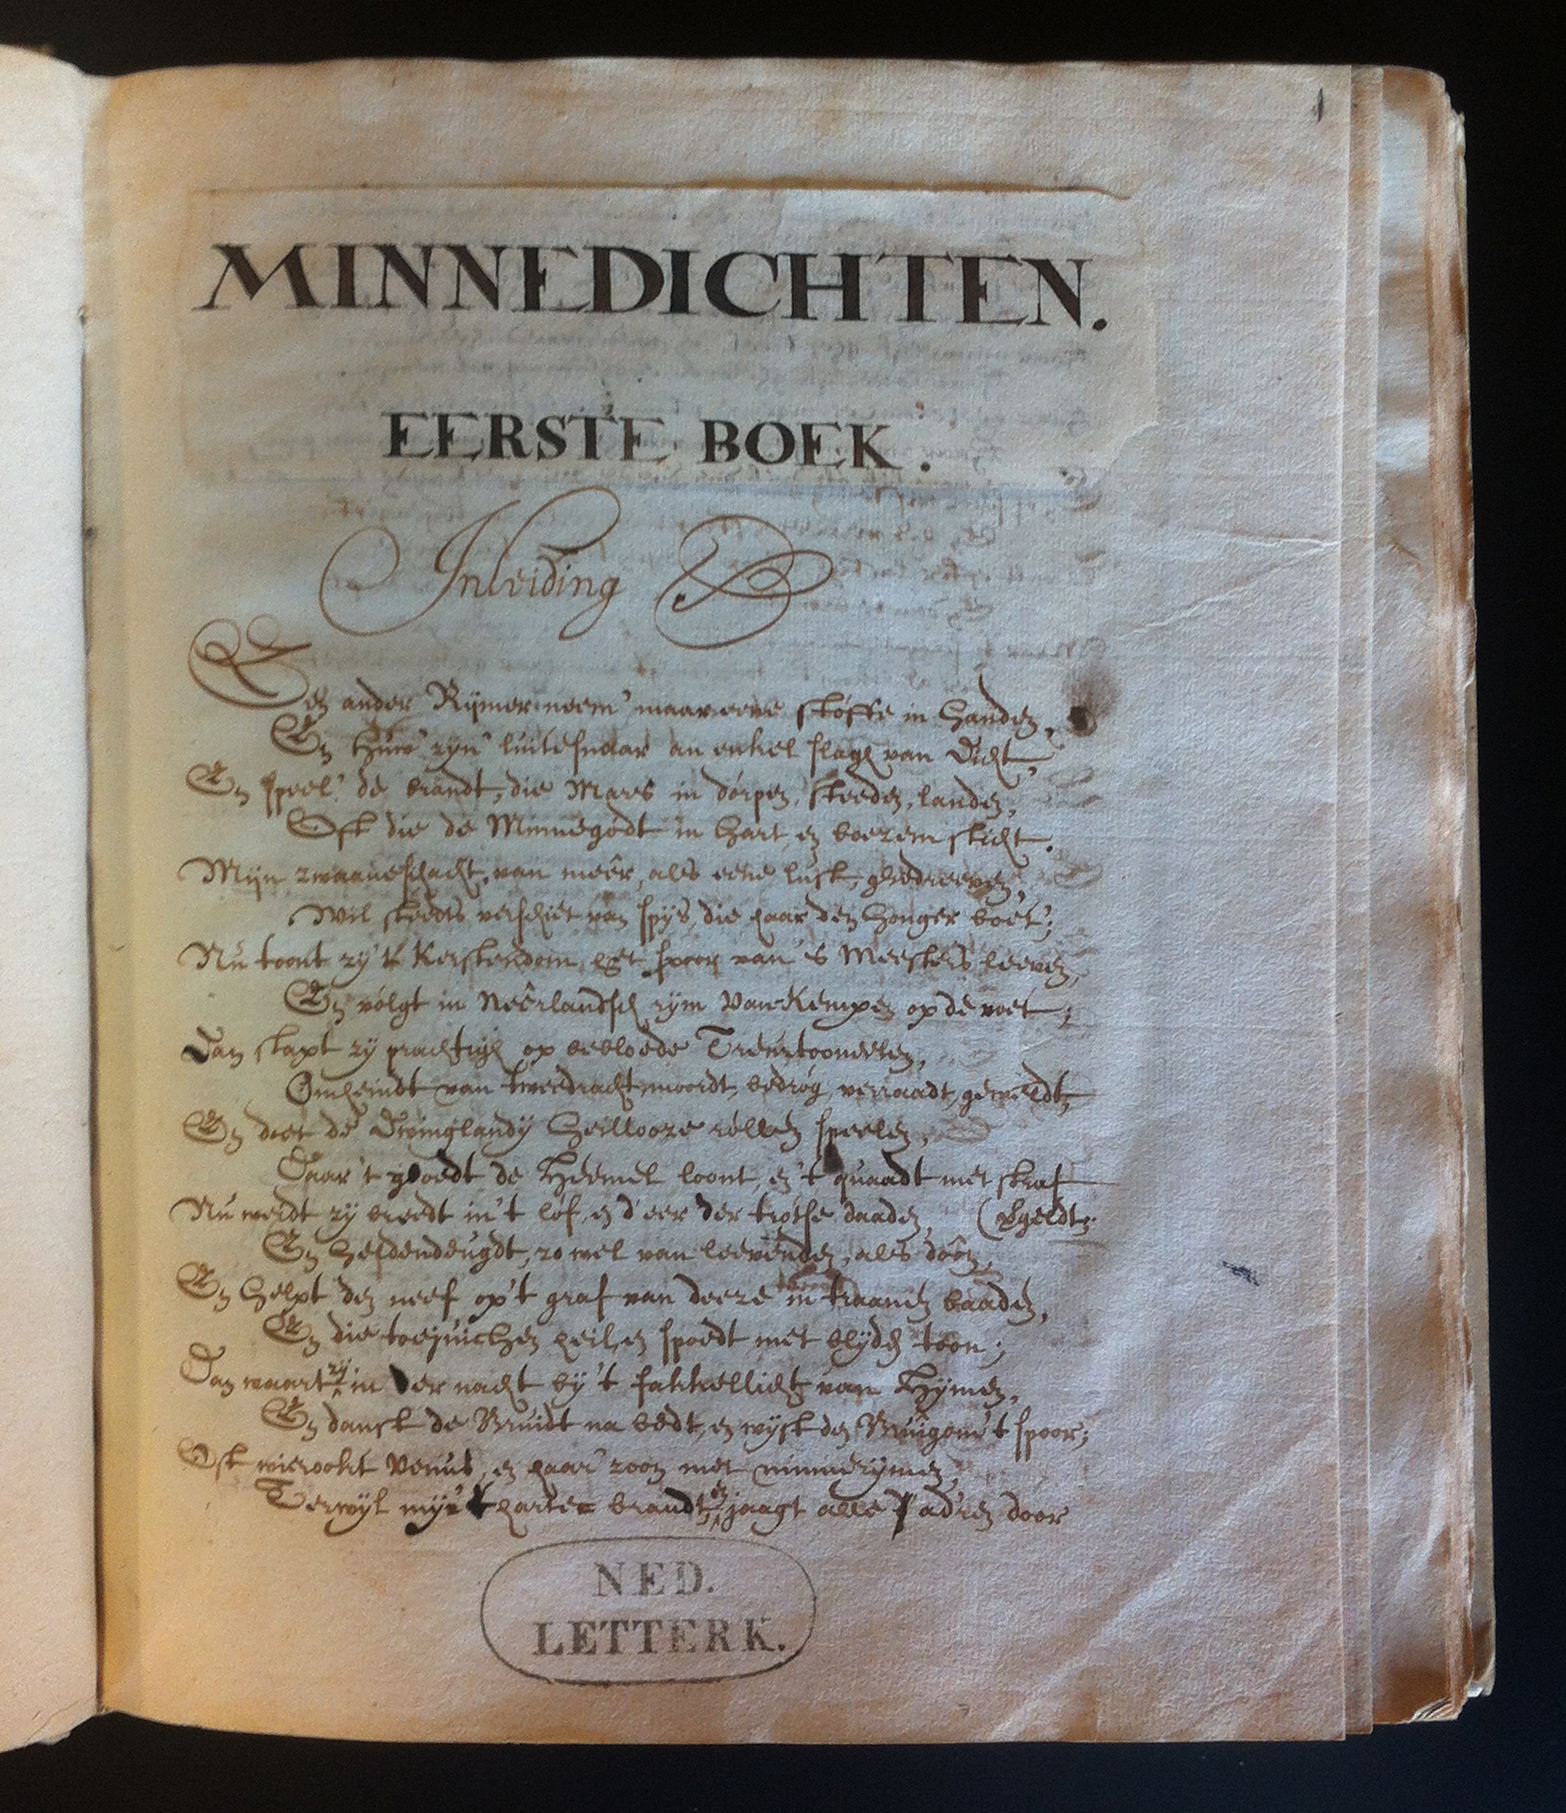 1
MINNEDICHTEN.
EERSTE BOEK.
Inleiding
Een ander Rijmer neem' maar eene stoffe in handen,
En huw' zyn' luitesnaar an enkel slagh van dicht,
En speel' de brandt, die Mars in dorpen, steeden, landen,
Oft die de Minnegodt in hart, en boezem sticht.
Mijn zwaaneschacht, van meêr, als eene lust, gedreeven,
Wil steedts verschiet van spys, die haar den honger boet;
Nu toont zy 't Kerstendom het spoor van 's Meesters leeven,
En volgt in Neêrlandsch rijm Van Kempen op de voet;
Dan stapt zy prachtigh op bebloede Treurtooneelen,
Omheindt van tweedracht, moordt, bedrog, verraadt, geweldt,
En doet de Dwinglandy heillooze rollen speelen,
Daar 't goedt de Heemel loont, en 't quaadt met straf
Nu weidt zy breedt in 't lof, en d'eer der trotse daaden, (vgeldt:
En heldendeugdt, zo wel van leevenden, als doôn,
En helpt den neef op 't graf van deeze in traanen baaden,
En die toejuichen heil, en spoedt met blyden toon;
Dan waart zy in der nacht by 't fakkellicht van Hymen,
En danst de Bruidt na bedt, en wyst den Bruigom 't spoor;
Oft wierookt Venus, en haar' zoon met minnerijmen,
Terwyl mijn harte brandt, en jaagt alle ad'ren door
NED.
LETTERK.